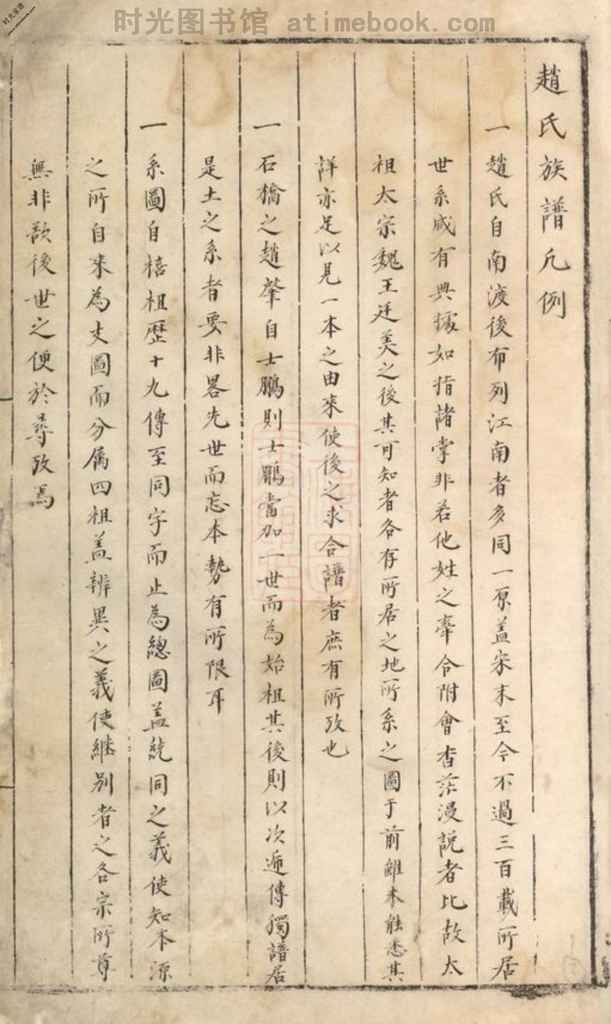 时光图书馆 atimebook.com
时光家谱
趙氏族譜凡例
一趙氏自南渡後布列江南者多同一原蓋宋末至今不過三百載所居
世系咸有典據如指諸掌非若他姓之牽合附會杳茫漫說者比故太
祖太宗魏王廷美之後其可知者各存所居之地所系之圖于前雖未能悉其
詳亦足以見一本之由來使後之求合譜者庶有所攷也
一石橋之趙肇自士鵬則士鵬當加一世而為始祖其後則以次遞傳獨譜居
是土之系者要非畧先世而忘本勢有所限耳
一系圖自禧祖歷十九傳至同字而止為總圖蓋統同之義使知本源
之所自來為支圖而分屬四祖蓋辨異之義使繼別者之各宗所尊
無非欲後世之便於尋攷焉